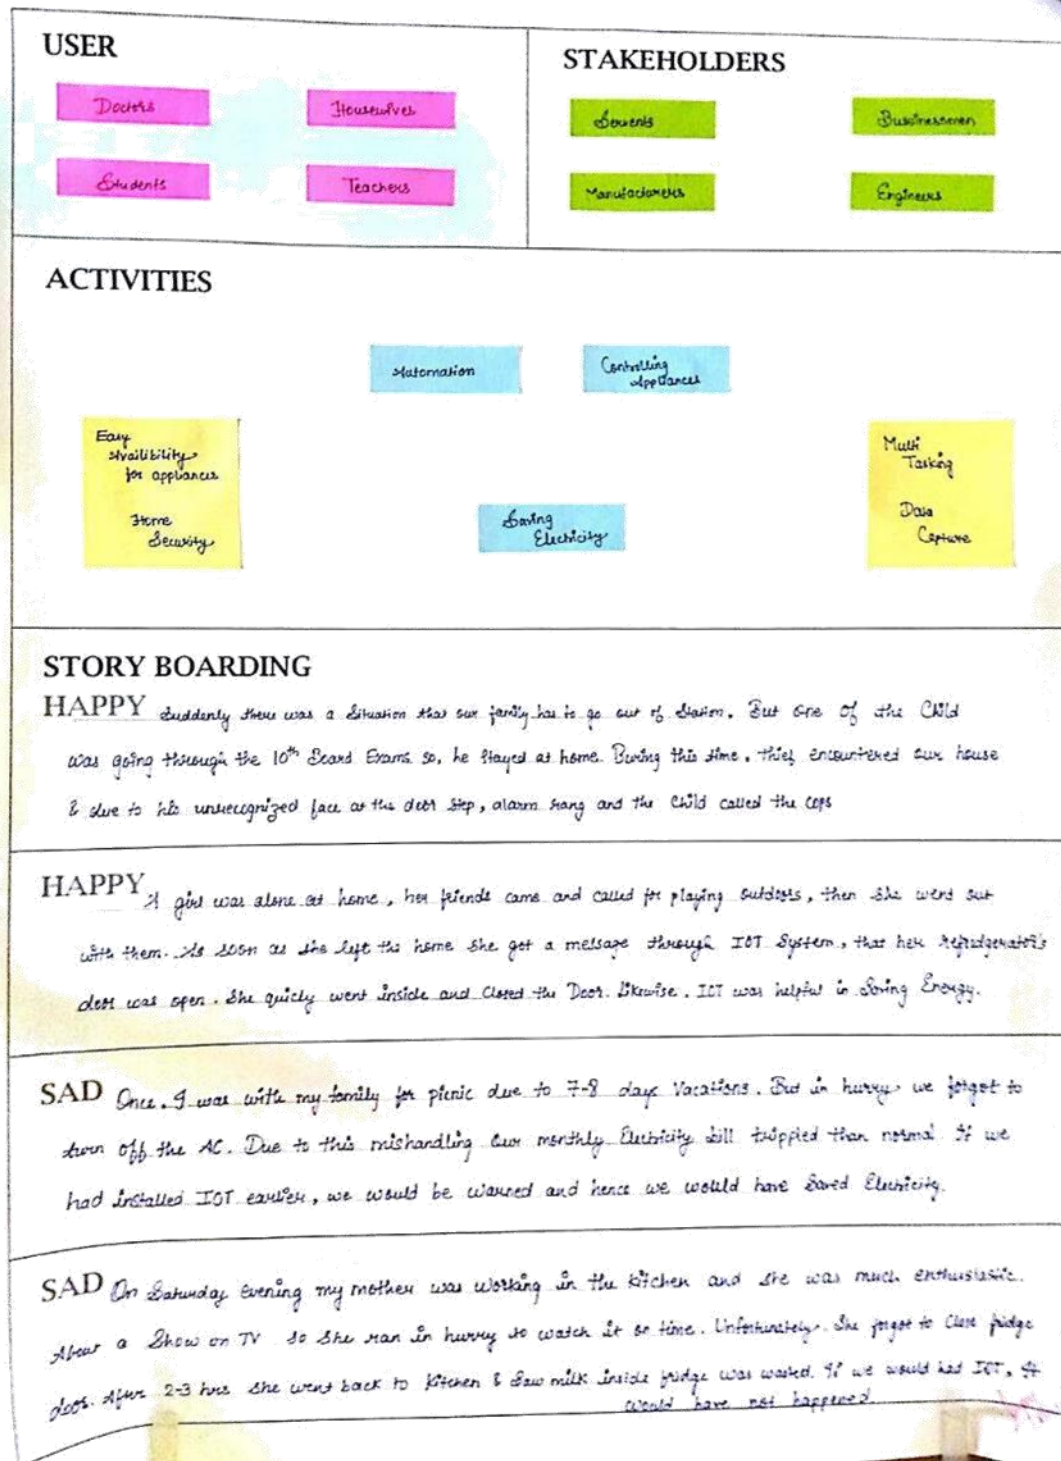 USER
Doctors
Housewives
Students
Teachers
STAKEHOLDERS
Servents
Bussinessmen
Manufacturers
Engineers
ACTIVITIES
Automation
Controlling
Appliances
Easy
Availibility
for appliances
Home
Security
Saving
Electricity
Multi
Tasking
Data
Capture
STORY BOARDING
HAPPY Suddenly there was a Situation that our family has to go out of Station. But one of the Child
was going through the 10th Board Exams. so, he stayed at home. During this time, thief encountered our house
& due to his unrecognized face at the door step, alarm rang and the Child called the cops
HAPPY A girl was alone at home, her friends came and called for playing outdoors, then she went out
with them. As soon as she left the home she got a message through IOT System, that her Refridgerator's
door was open. She quicly went inside and Closed the Door. Likewise, IOT was helpful in Saving Energy.
SAD Once, I was with my family for picnic due to 7-8 days Vacations. But in hurry we forgot to
turn off the AC. Due to this mishandling our monthly Electricity bill trippled than normal. If we
had installed IOT earlier, we would be warned and hence we would have Saved Electricity.
SAD On Saturday evening my mother was working in the kitchen and she was much enthusiastic.
About a Show on TV so she ran in hurry to watch it on time. Unfortunately, She forgot to Close fridge
door. After 2-3 hrs she went back to kitchen & saw milk inside fridge was wasted. If we would had IOT, It
would have not happened.